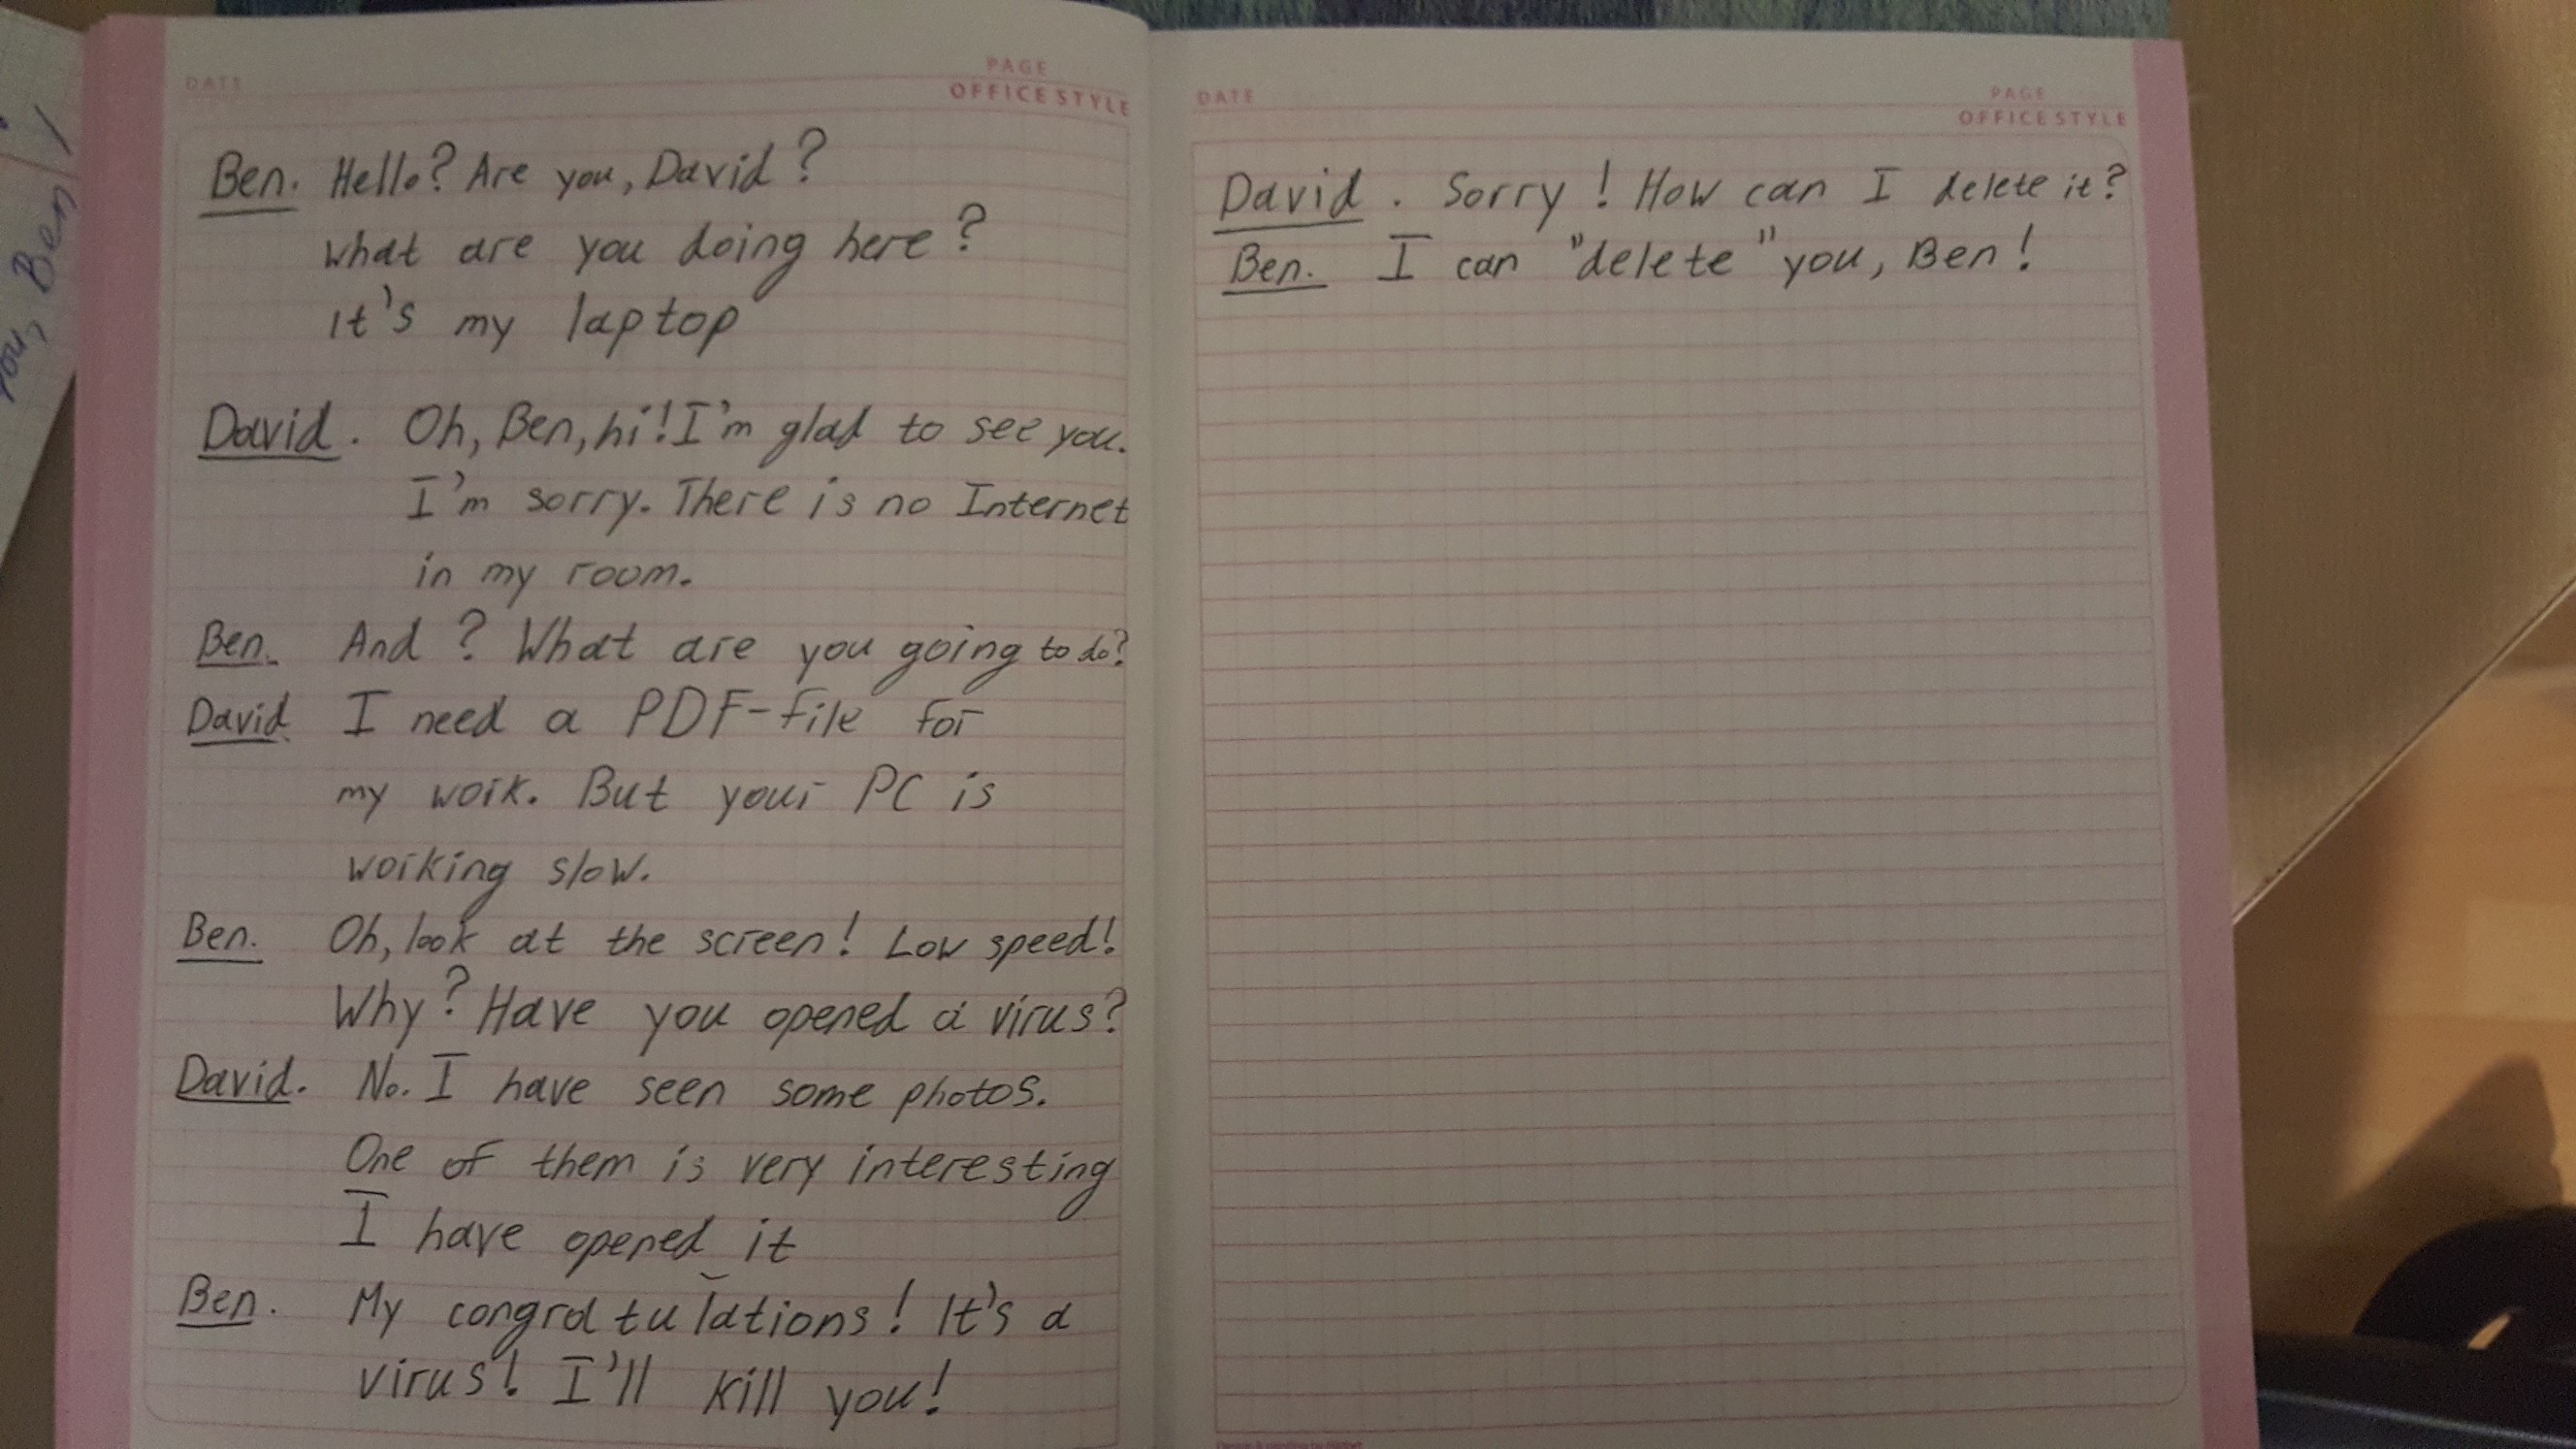 You, Ben!
DATE
PAGE
OFFICE STYLE
Ben. Hello? Are you, David?
What are you doing here?
It's my laptop
David. Oh, Ben, hi! I'm glad to see you.
I'm sorry. There is no Internet
in my room.
Ben. And? What are you going to do?
David. I need a PDF-file for
my work. But your PC is
working slow.
Ben. Oh, look at the screen! Low speed!
Why? Have you opened a virus?
David. No. I have seen some photos.
One of them is very interesting
I have opened it
Ben. My congratulations! It's a
virus! I'll kill you!
DATE
PAGE
OFFICE STYLE
David. Sorry! How can I delete it?
Ben. I can "delete" you, Ben!